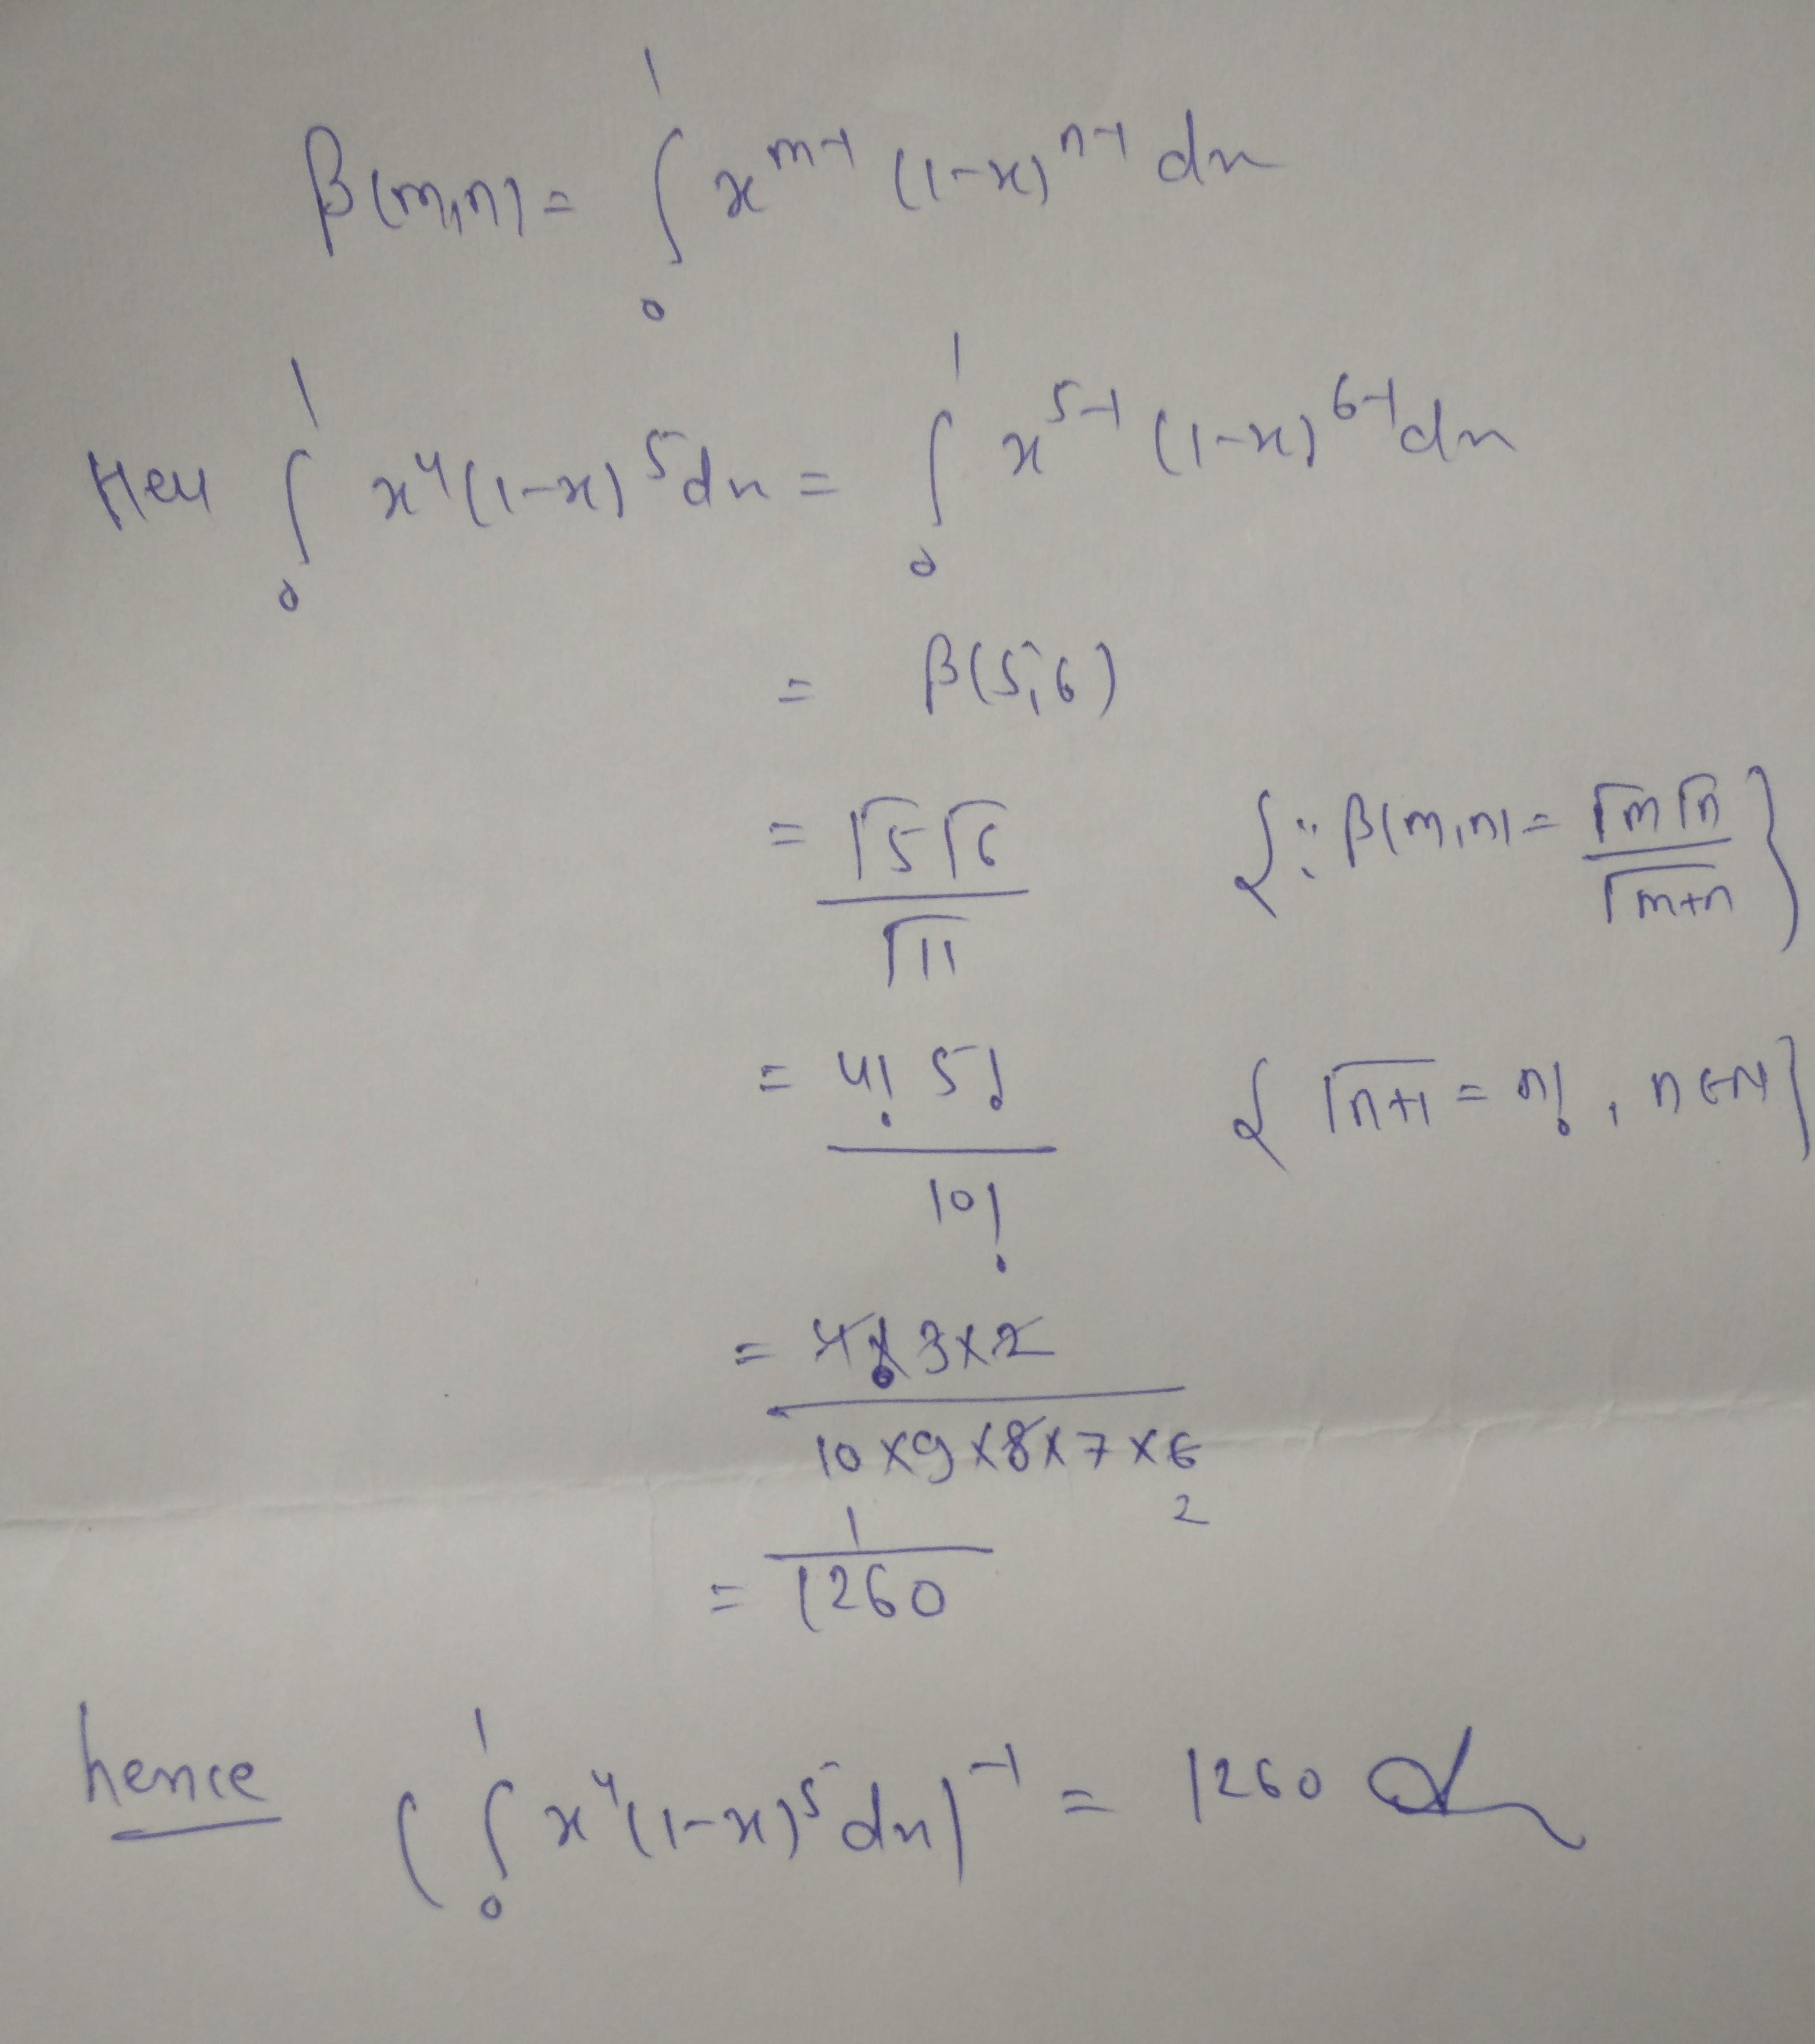 β(m,n) = ∫₀¹ x^{m-1} (1-x)^{n-1} dx
Her ∫₀¹ x⁴(1-x)⁵dx = ∫₀¹ x^{5-1} (1-x)^{6-1} dx
= β(5,6)
= Γ5 Γ6 / Γ11 {∵ β(m,n) = Γm Γn / Γm+n}
= 4! 5! / 10! { Γn+1 = n! , n∈N}
= 4×3×2 / 10×9×8×7×6
2
= 1/1260
hence (∫₀¹ x⁴(1-x)⁵dx)^{-1} = 1260